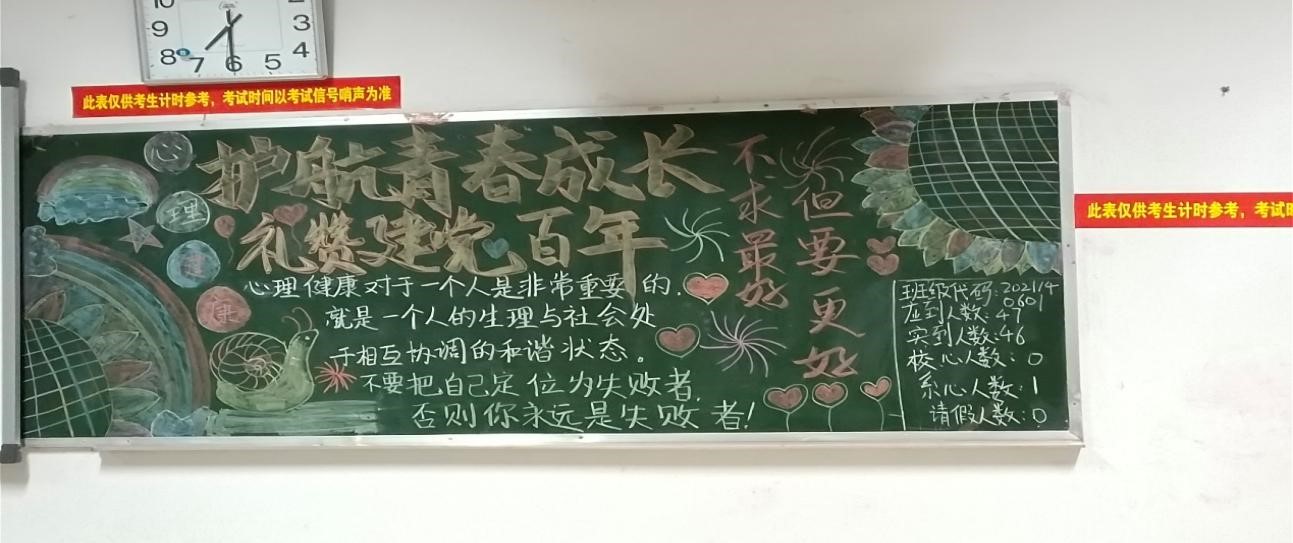 10
9
8
7
6
5
4
3
2
此表仅供考生计时参考，考试时间以考试信号哨声为准
此表仅供考生计时参考，考试时
心理健康
护航青春成长
礼赞建党百年
心理健康对于一个人是非常重要的.
就是一个人的生理与社会处
于相互协调的和谐状态。
不要把自己定位为失败者.
否则你永远是失败者!
不求最好
但要更好
班级代码:2021/4
0601
应到人数:47
实到人数:46
校心人数:0
系心人数:1
请假人数:0